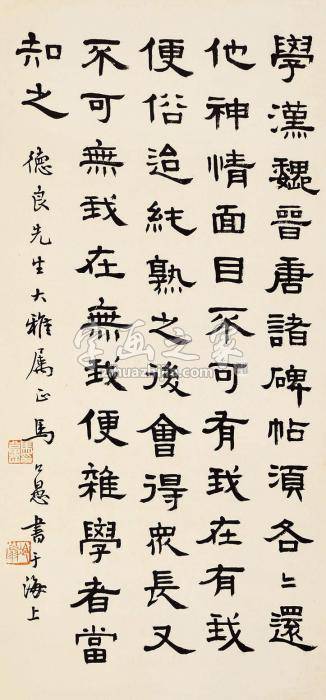 學漢魏晉唐諸碑帖須各各還
他神情面目不可有我在有我
便俗迨純熟之後會得眾長又
不可無我在無我便雜學者當
知之
德良先生大雅属正馬公愚書于海上
字画之家
nzhuazhijia.com